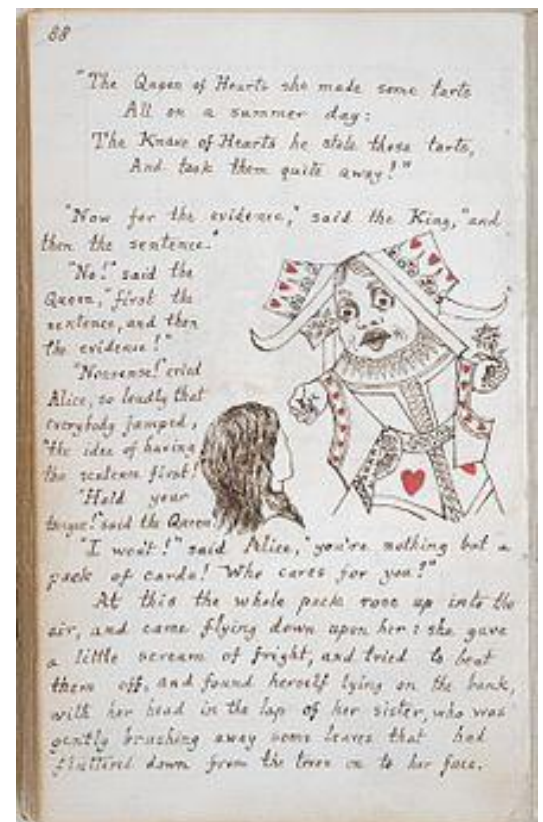 88
"The Queen of Hearts she made some tarts
All on a summer day:
The Knave of Hearts he stole those tarts,
And took them quite away!"
"Now for the evidence," said the King, "and
then the sentence."
"No!" said the
Queen, "first the
sentence, and then
the evidence!"
"Nonsense!" cried
Alice, so loudly that
everybody jumped,
"the idea of having
the sentence first!"
"Hold your
tongue!" said the Queen.
"I won't!" said Alice, "you're nothing but a
pack of cards! Who cares for you?"
At this the whole pack rose up into the
air, and came flying down upon her: she gave
a little scream of fright, and tried to beat
them off, and found herself lying on the bank,
with her head in the lap of her sister, who was
gently brushing away some leaves that had
fluttered down from the trees on to her face.